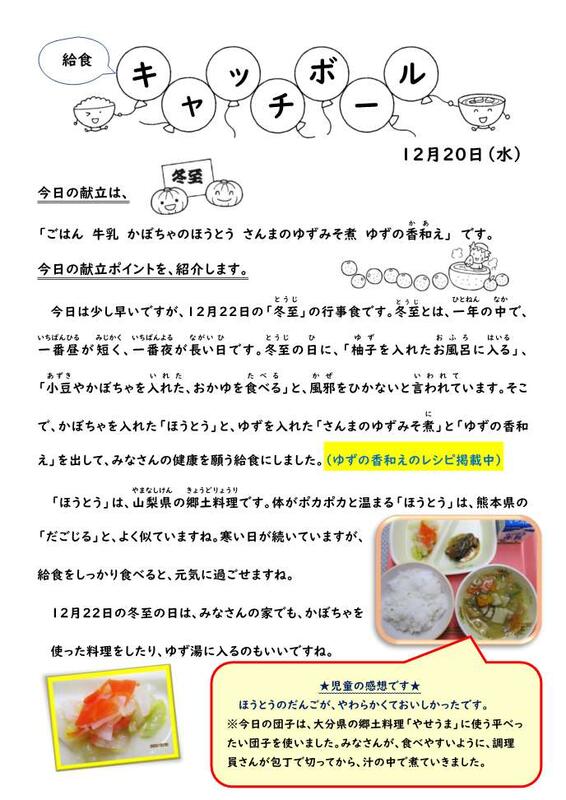 給食
キャッチボール
12月20日(水)
冬至
今日の献立は、
「ごはん 牛乳 かぼちゃのほうとう さんまのゆずみそ煮 ゆずの香和え」 です。
今日の献立ポイントを、紹介します。
今日は少し早いですが、12月22日の「冬至」の行事食です。冬至とは、一年の中で、
一番昼が短く、一番夜が長い日です。冬至の日に、「柚子を入れたお風呂に入る」、
「小豆やかぼちゃを入れた、おかゆを食べる」と、風邪をひかないと言われています。そこ
で、かぼちゃを入れた「ほうとう」と、ゆずを入れた「さんまのゆずみそ煮」と「ゆずの香和
え」を出して、みなさんの健康を願う給食にしました。(ゆずの香和えのレシピ掲載中)
「ほうとう」は、山梨県の郷土料理です。体がポカポカと温まる「ほうとう」は、熊本県の
「だごじる」と、よく似ていますね。寒い日が続いていますが、
給食をしっかり食べると、元気に過ごせますね。
12月22日の冬至の日は、みなさんの家でも、かぼちゃを
使った料理をしたり、ゆず湯に入るのもいいですね。
★児童の感想です★
ほうとうのだんごが、やわらかくておいしかったです。
※今日の団子は、大分県の郷土料理「やせうま」に使う平べっ
たい団子を使いました。みなさんが、食べやすいように、調理
員さんが包丁で切ってから、汁の中で煮ていきました。